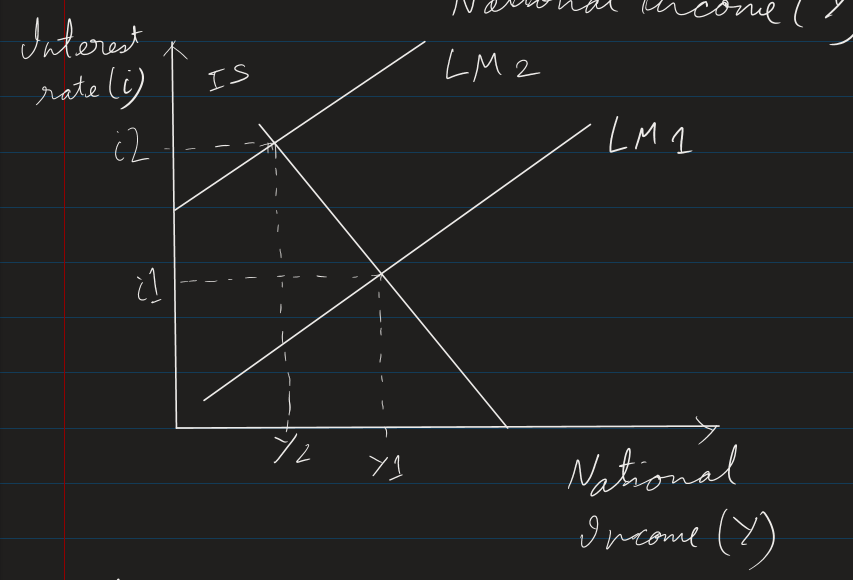 National Income (Y)
Interest
rate (i)
IS
LM2
LM1
i2
i1
Y2
Y1
National
Income (Y)